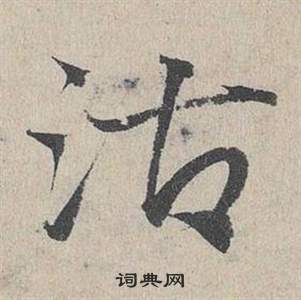 沽
词典网